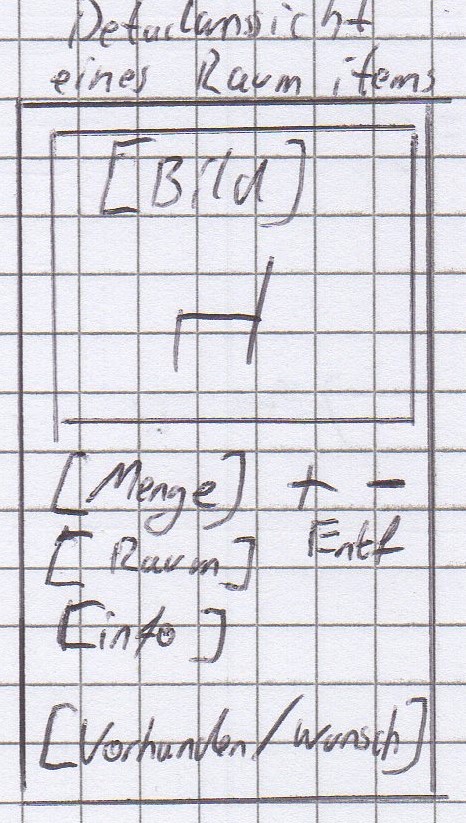 Detailansicht
eines Raum items
[Bild]
[Menge] + -
Entf
[Raum]
[info]
[Vorhanden/Wunsch]